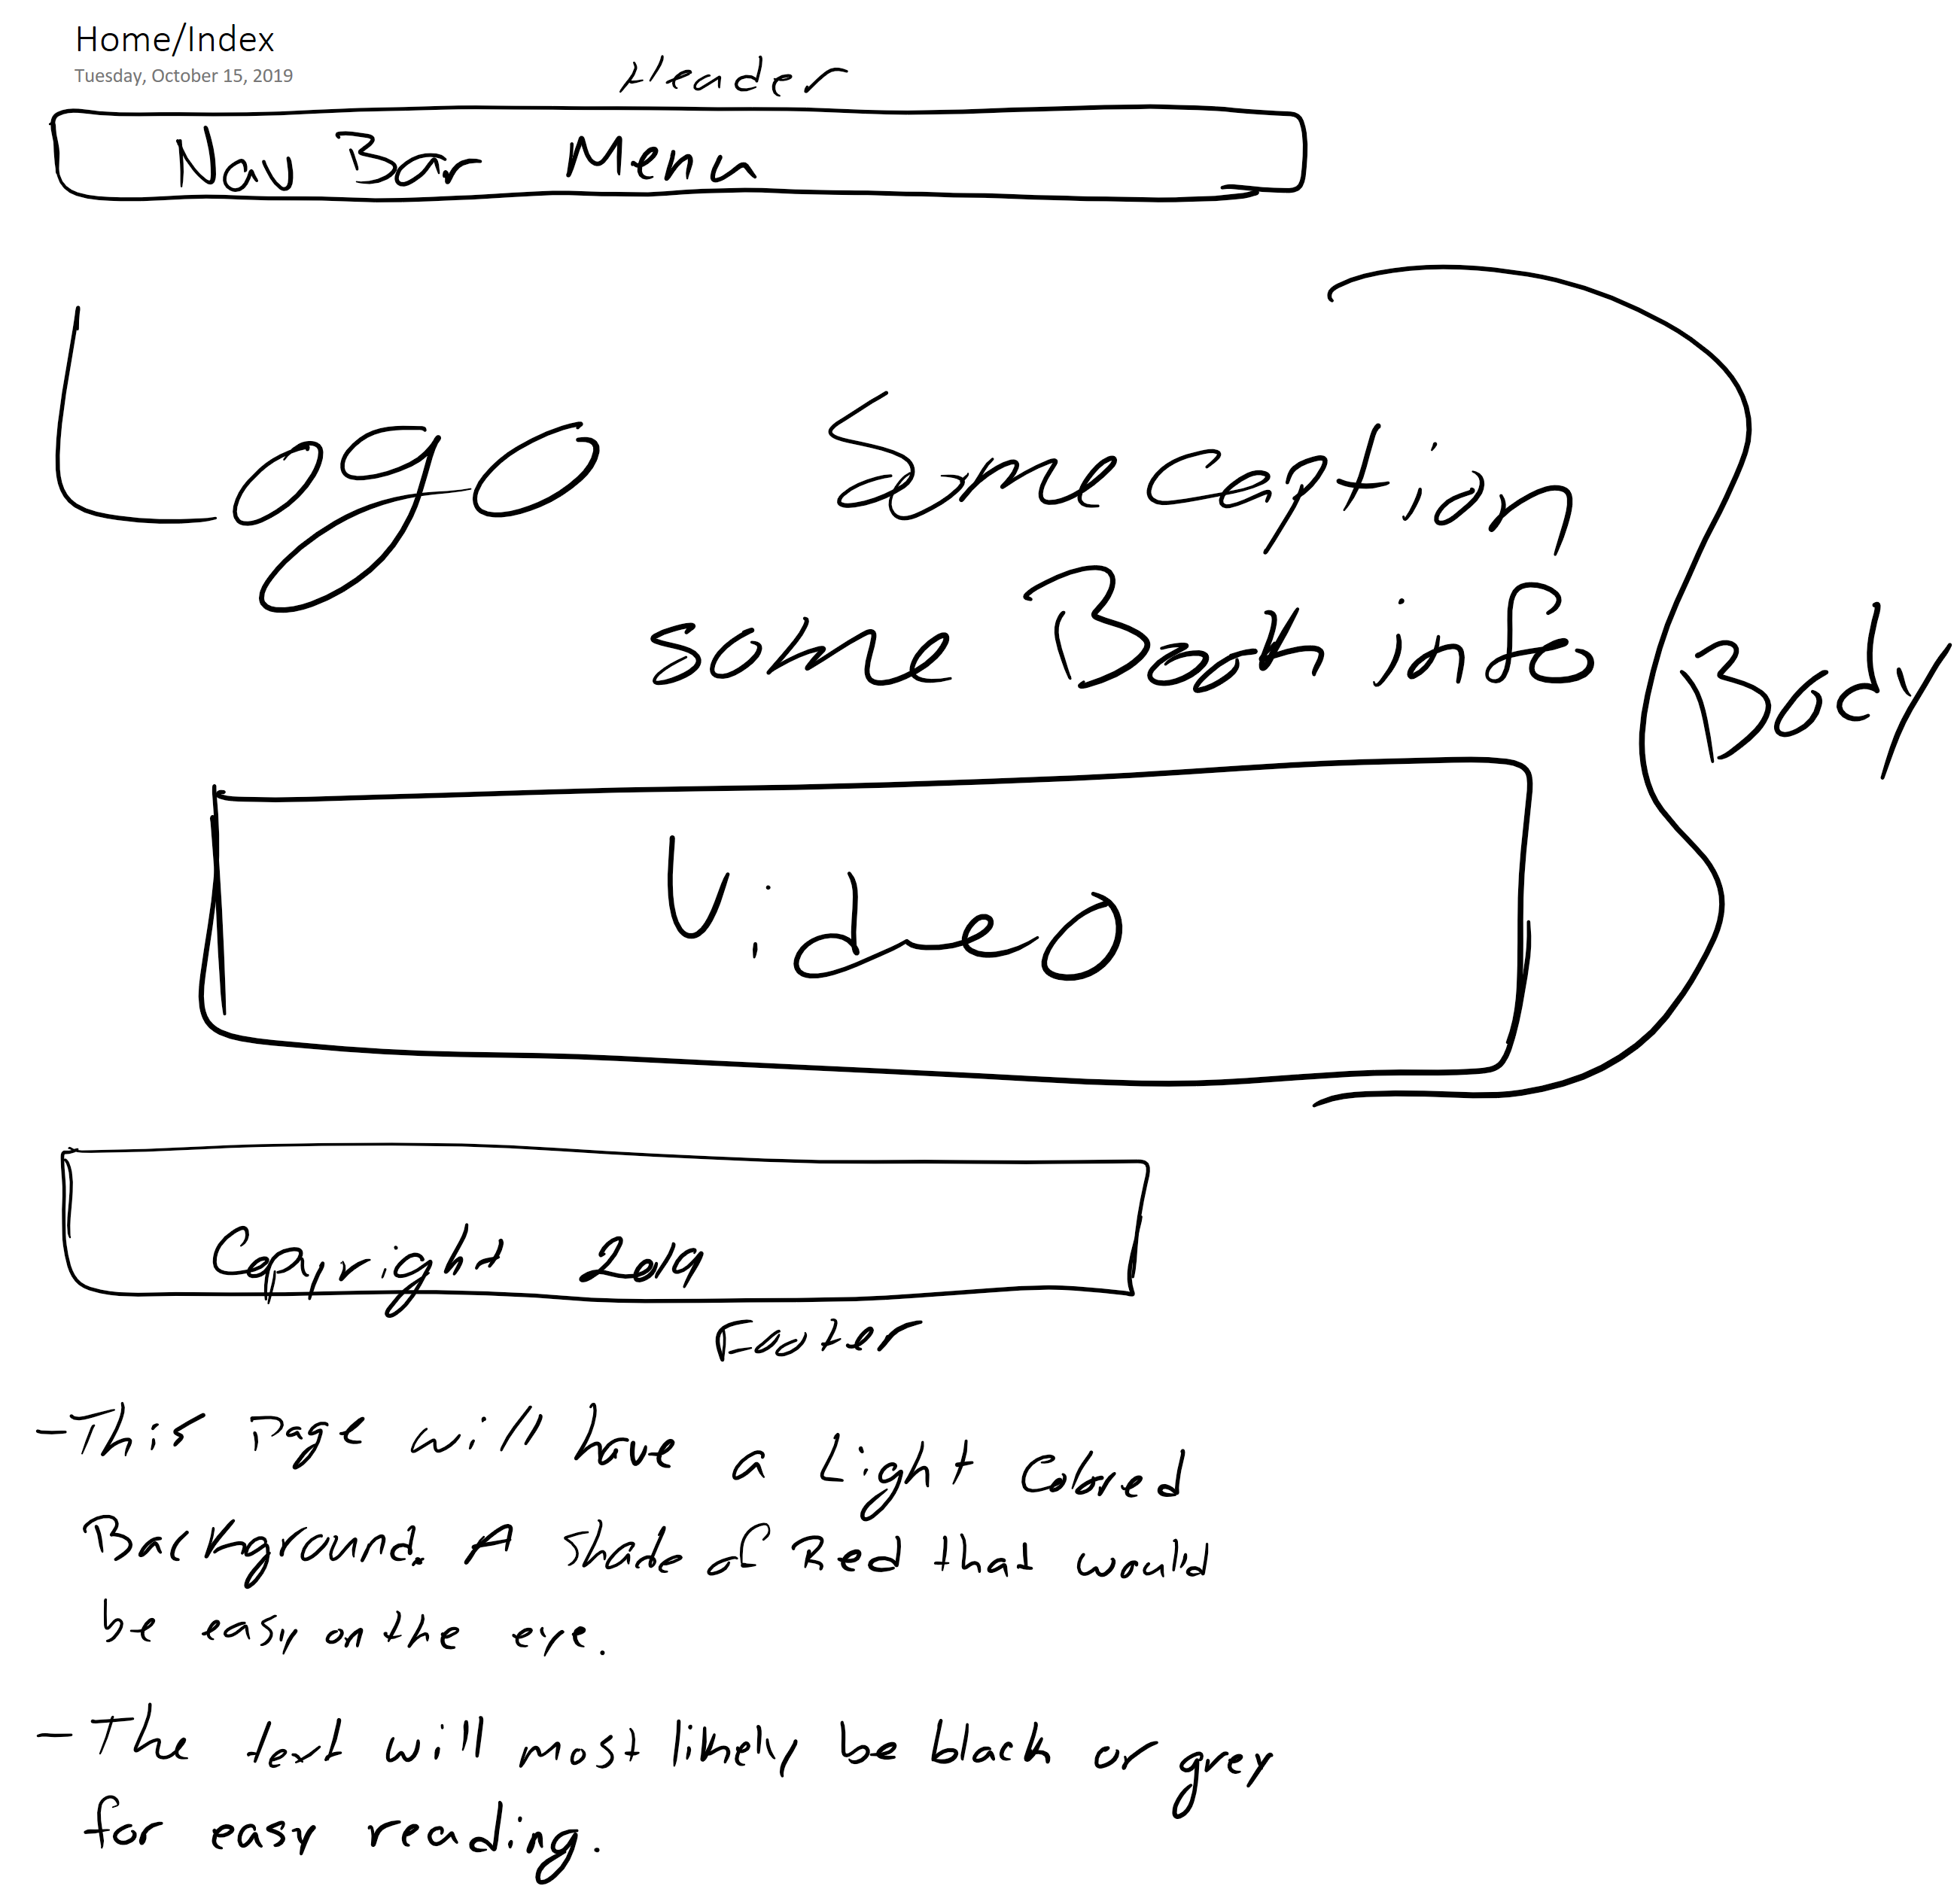 Home/Index
Tuesday, October 15, 2019
Header
Nav Bar Menu
Logo
Some caption
some Bash info
Body
Video
Copyright 2019
Footer
- This Page will have a Light Colored
Background. A Shade of Red that would
be easy on the eye.
- The text will most likely be black or grey
for easy reading.